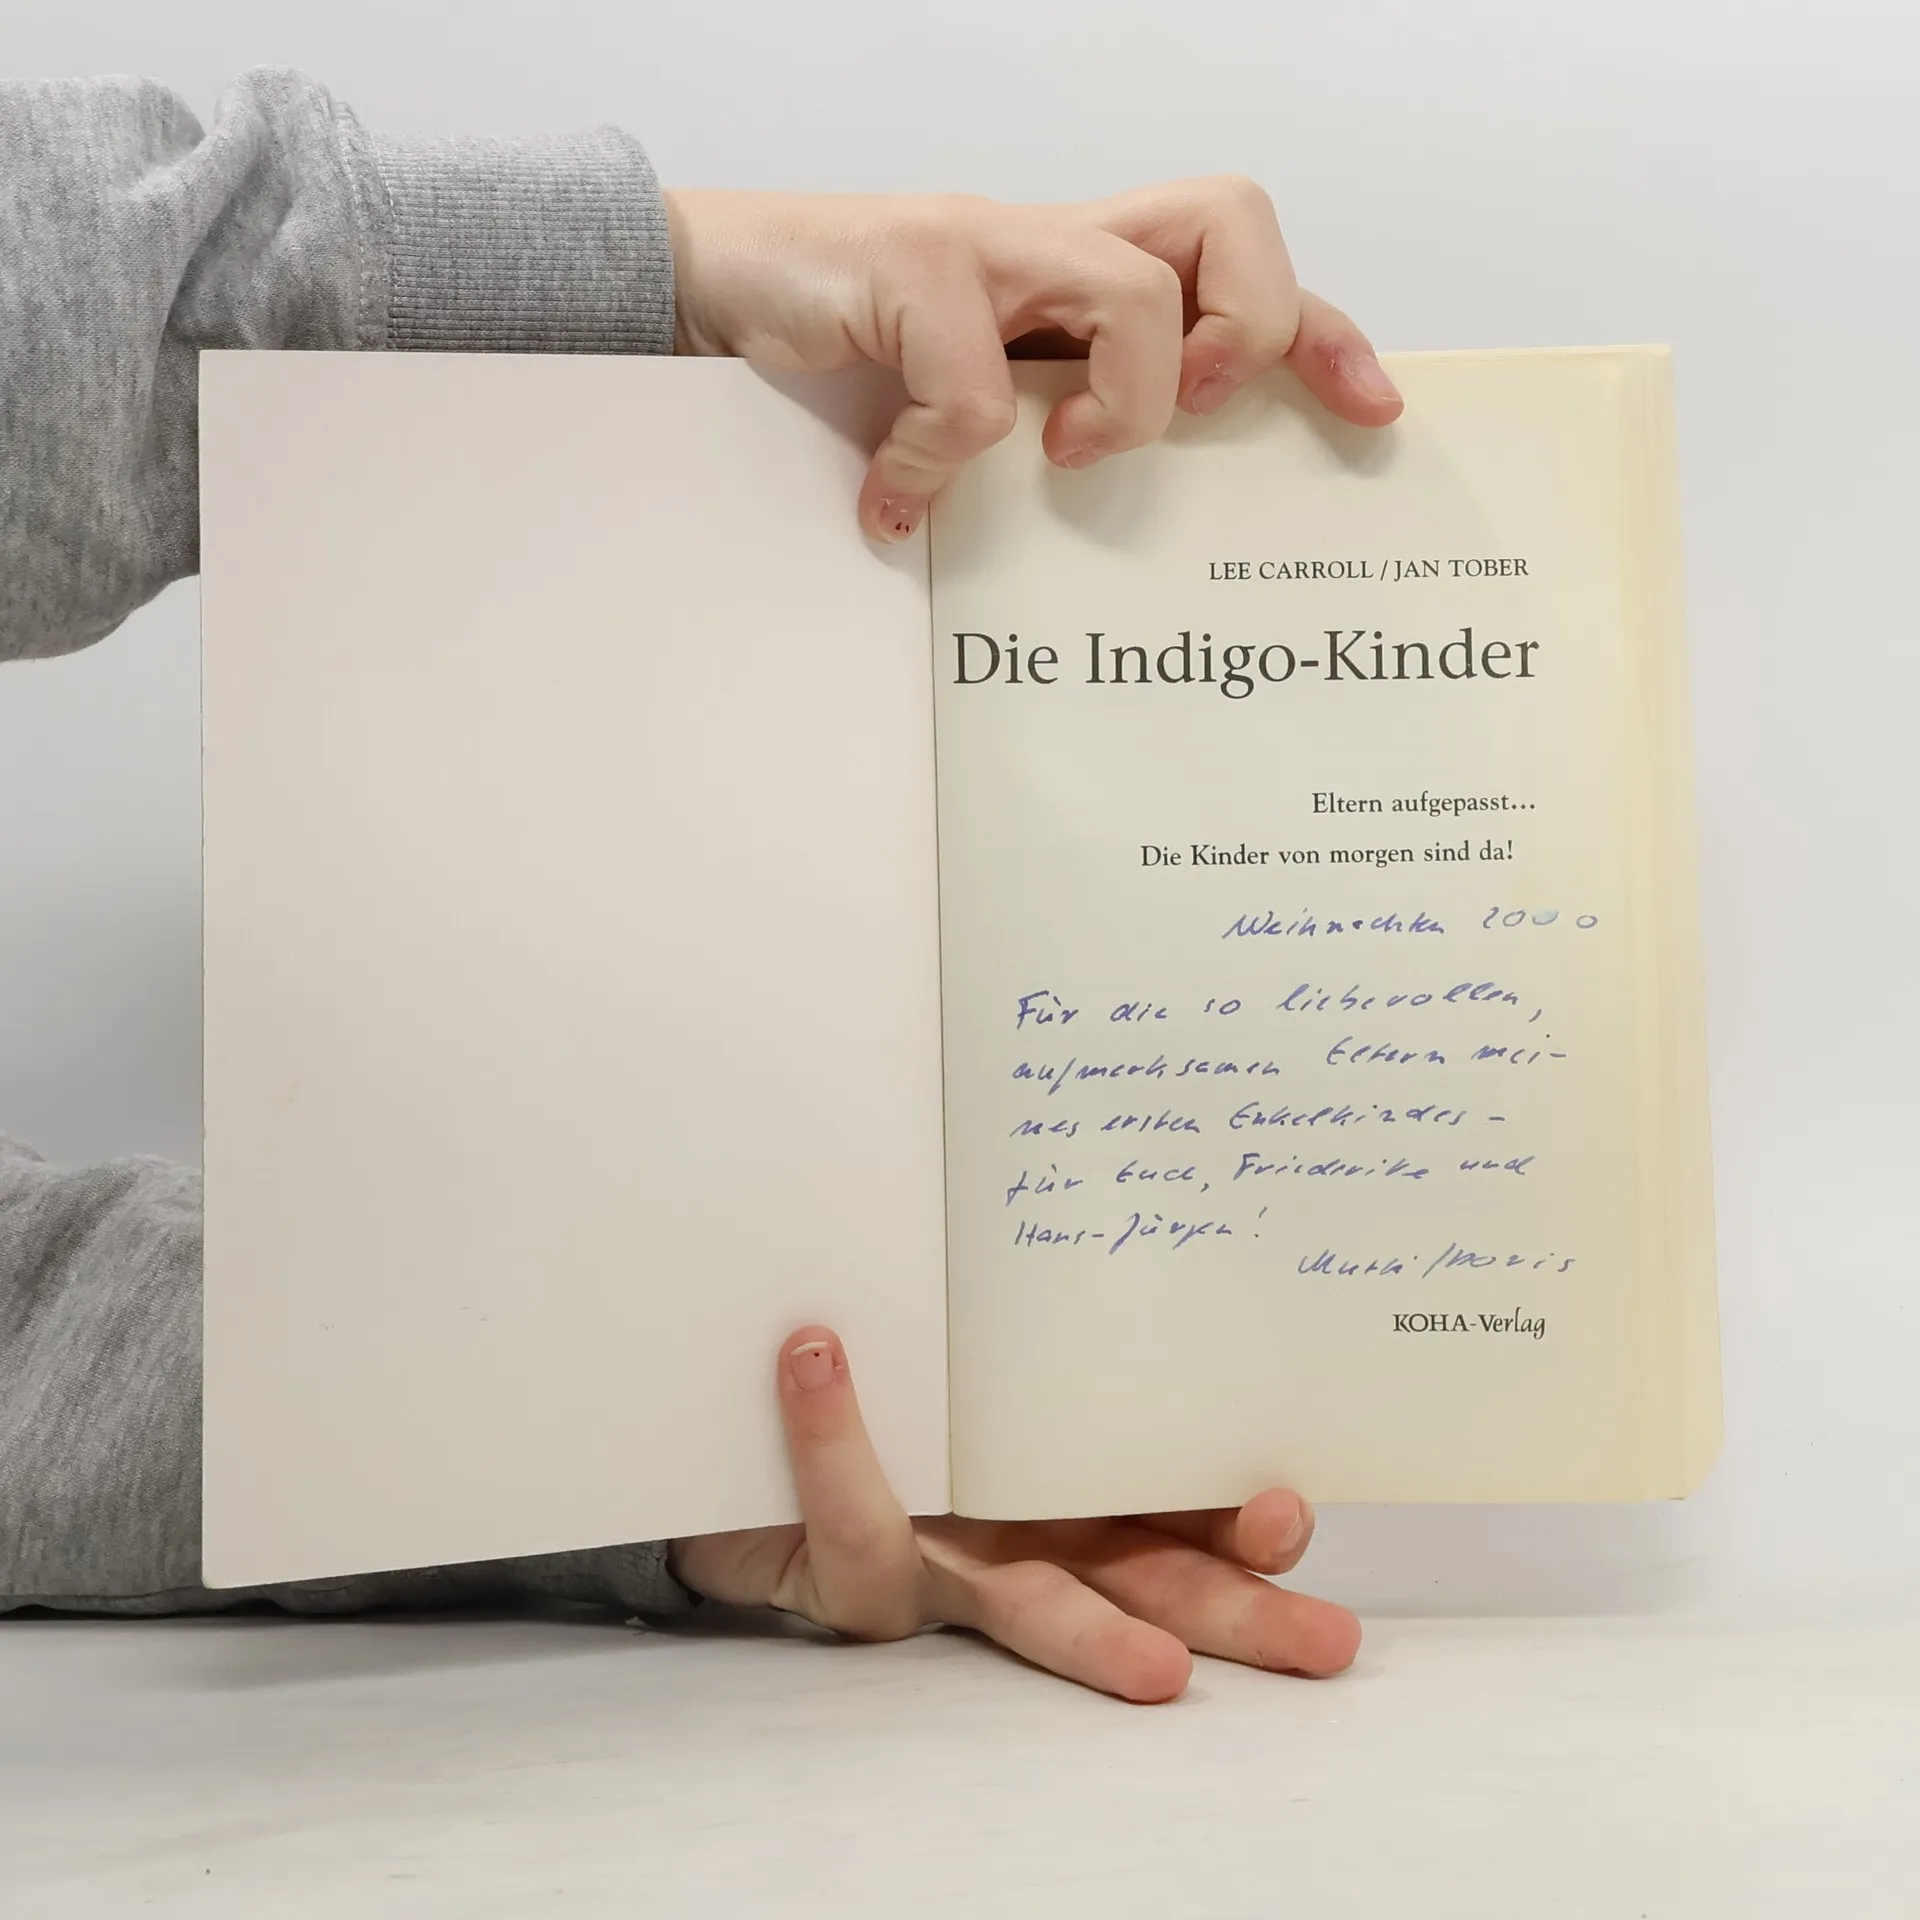 LEE CARROLL / JAN TOBER
Die Indigo-Kinder
Eltern aufgepasst...
Die Kinder von morgen sind da!
Weihnachten 2000
Für die so liebevollen,
aufmerksamen Eltern mei-
nes ersten Enkelkindes -
für Euch, Friederike und
Hans-Jürgen!
Mutti/Doris
KOHA-Verlag